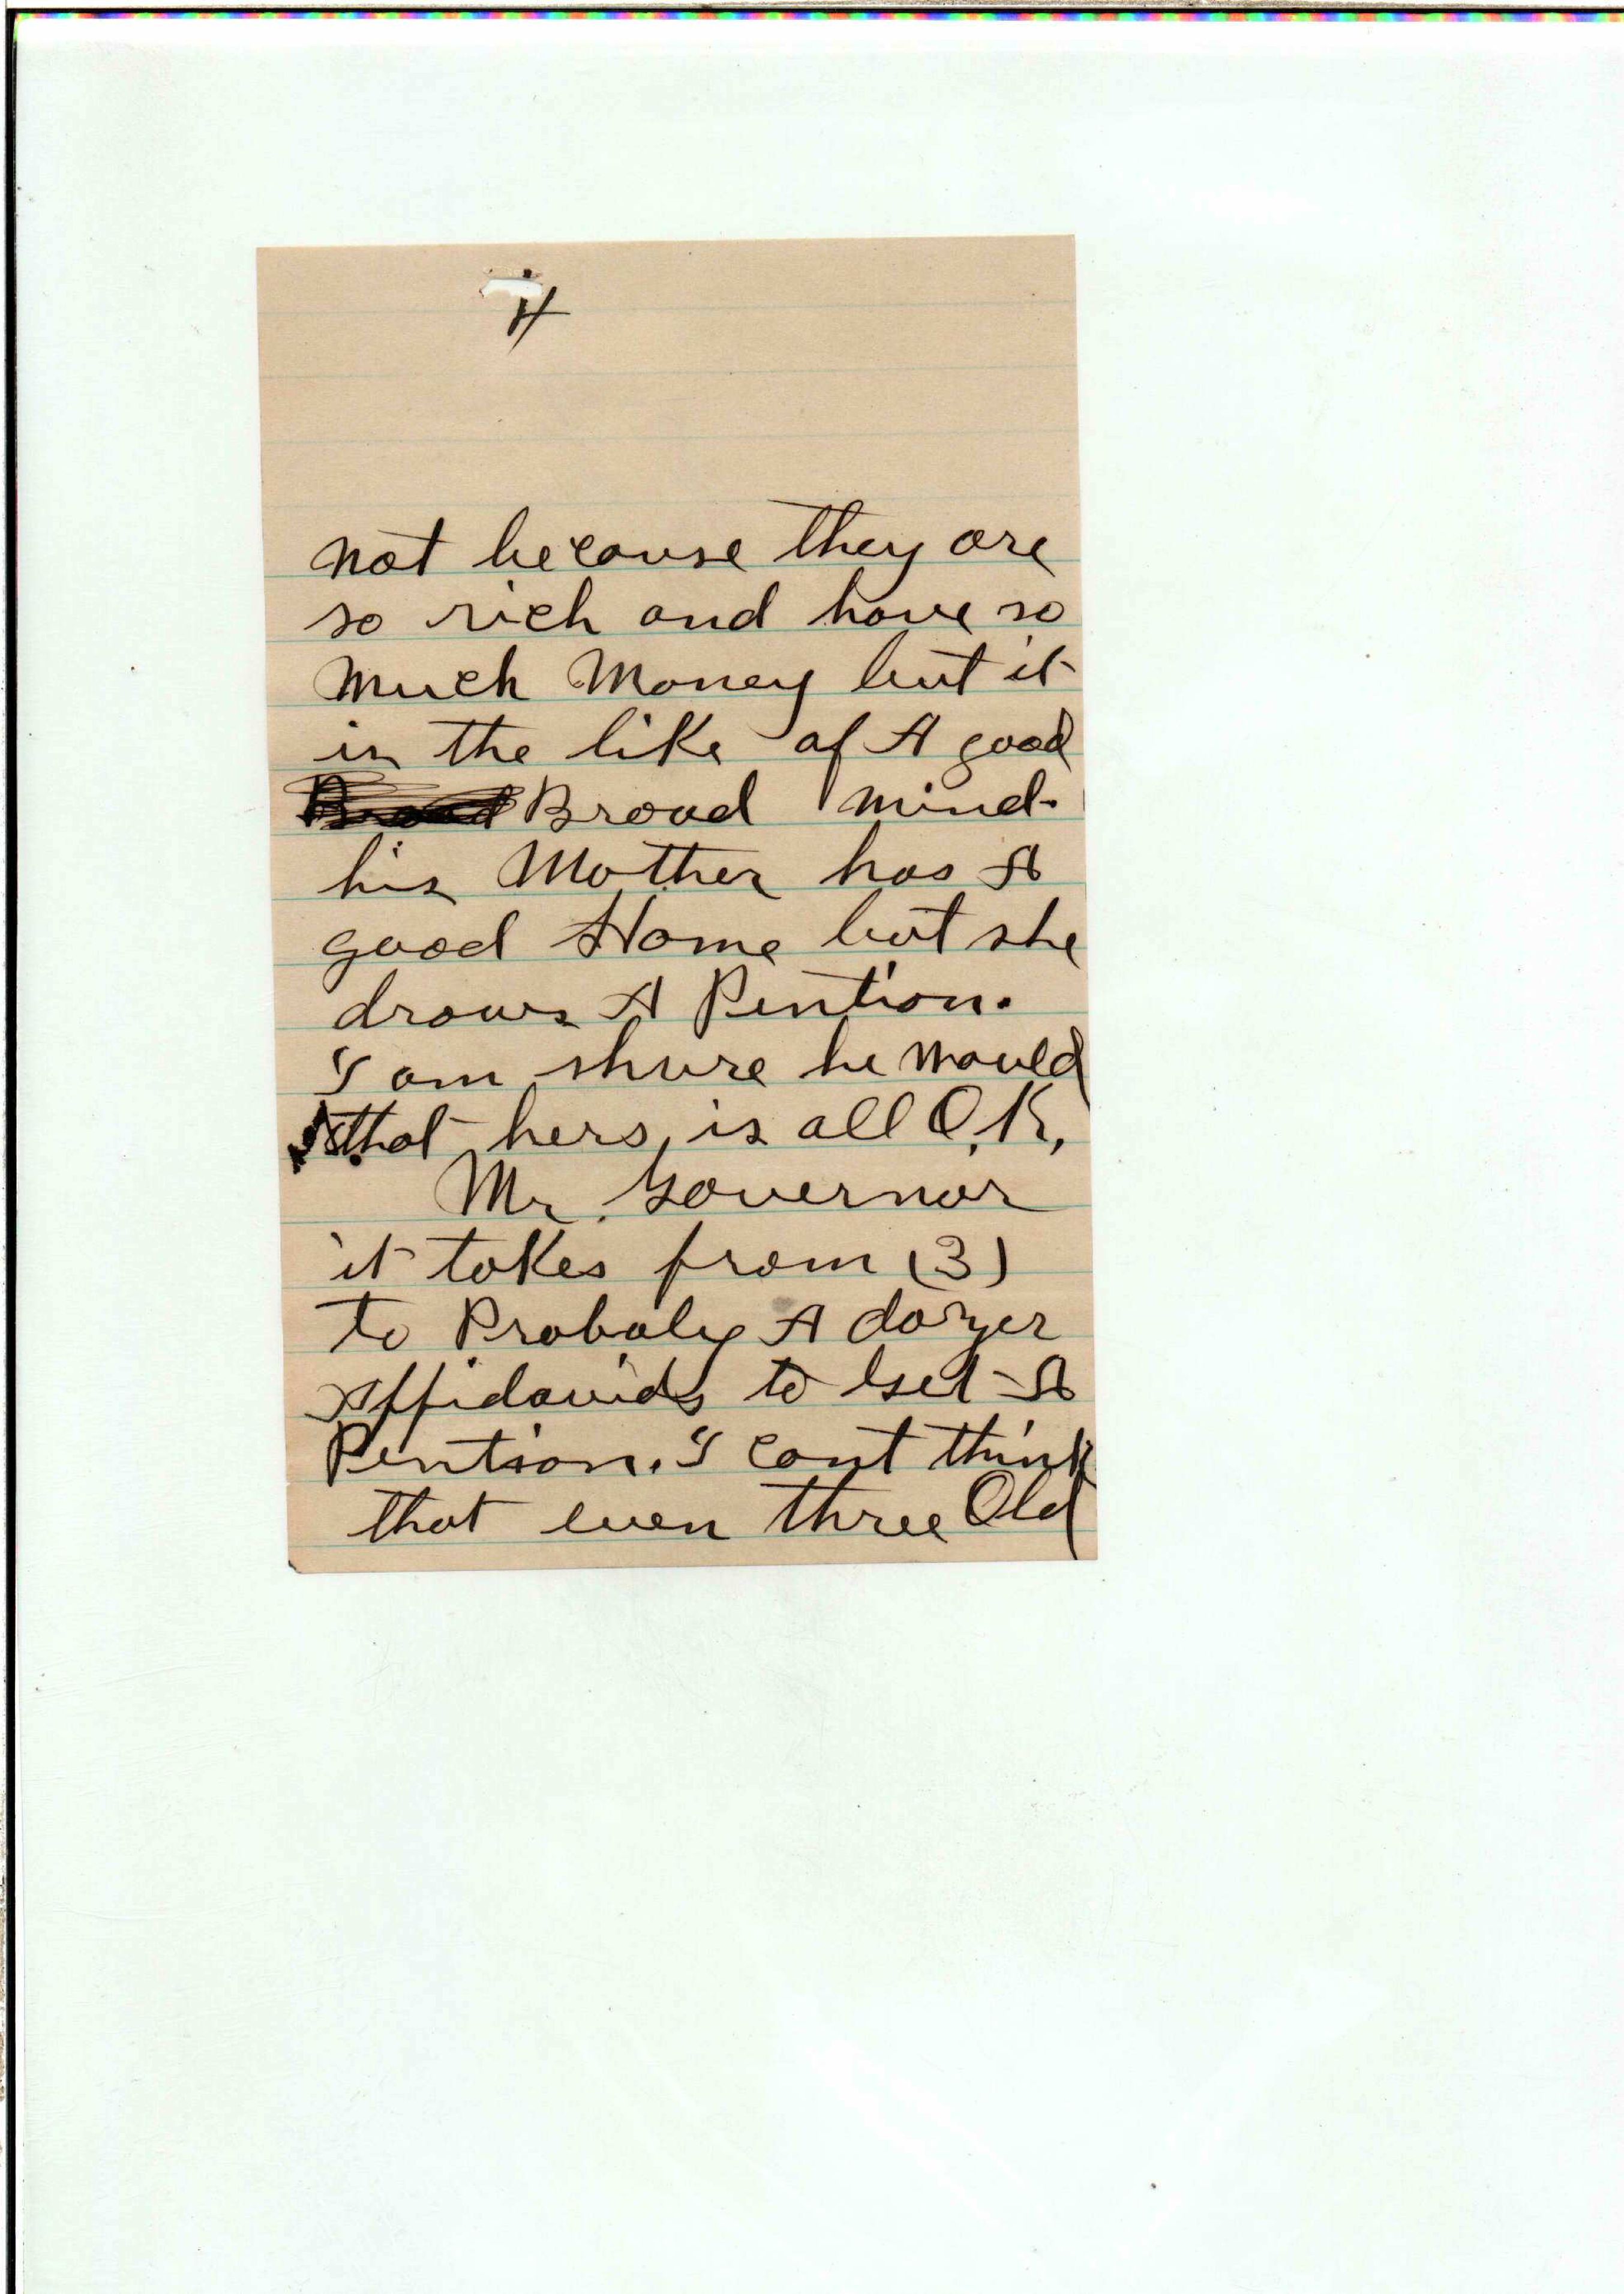 4
not because they are
so rich and have so
Much Money but it
is the like of A good
Broad mind.
his Mother has A
good Home but she
draws A Pention.
I am shure he Would
that hers, is all O.K,
Mr. Governor
it takes from (3)
to Probaly A dozyer
Affidavids to Get A
Pention. I cant think
that even three Old